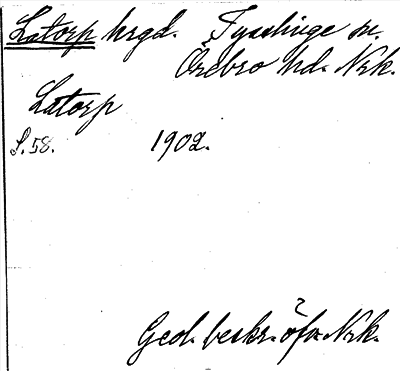 Latorp hrgd. Tysslinge sn.
Örebro hd. Nrk.
Latorp
S. 58. 1902.
Geol. beskr. öfv. Nrk.